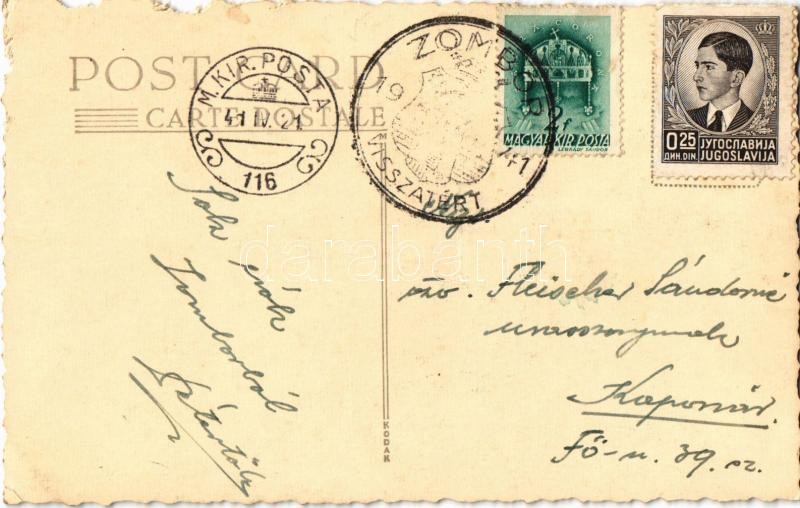 POST CARD
CARTE POSTALE
M. KIR. POSTA
41 IV. 21
116
ZOMBOR
19 41
VISSZATÉRT
MAGYAR KIR. POSTA
0.25 ЈУГОСЛАВИЈА
ДИН. DIN. JUGOSLAVIJA
darabanth
Sok
Zomborból
özv. Fleischer Sándorné
uraasszonynak
Kaposvár
Fő-u. 39. sz.
KODAK